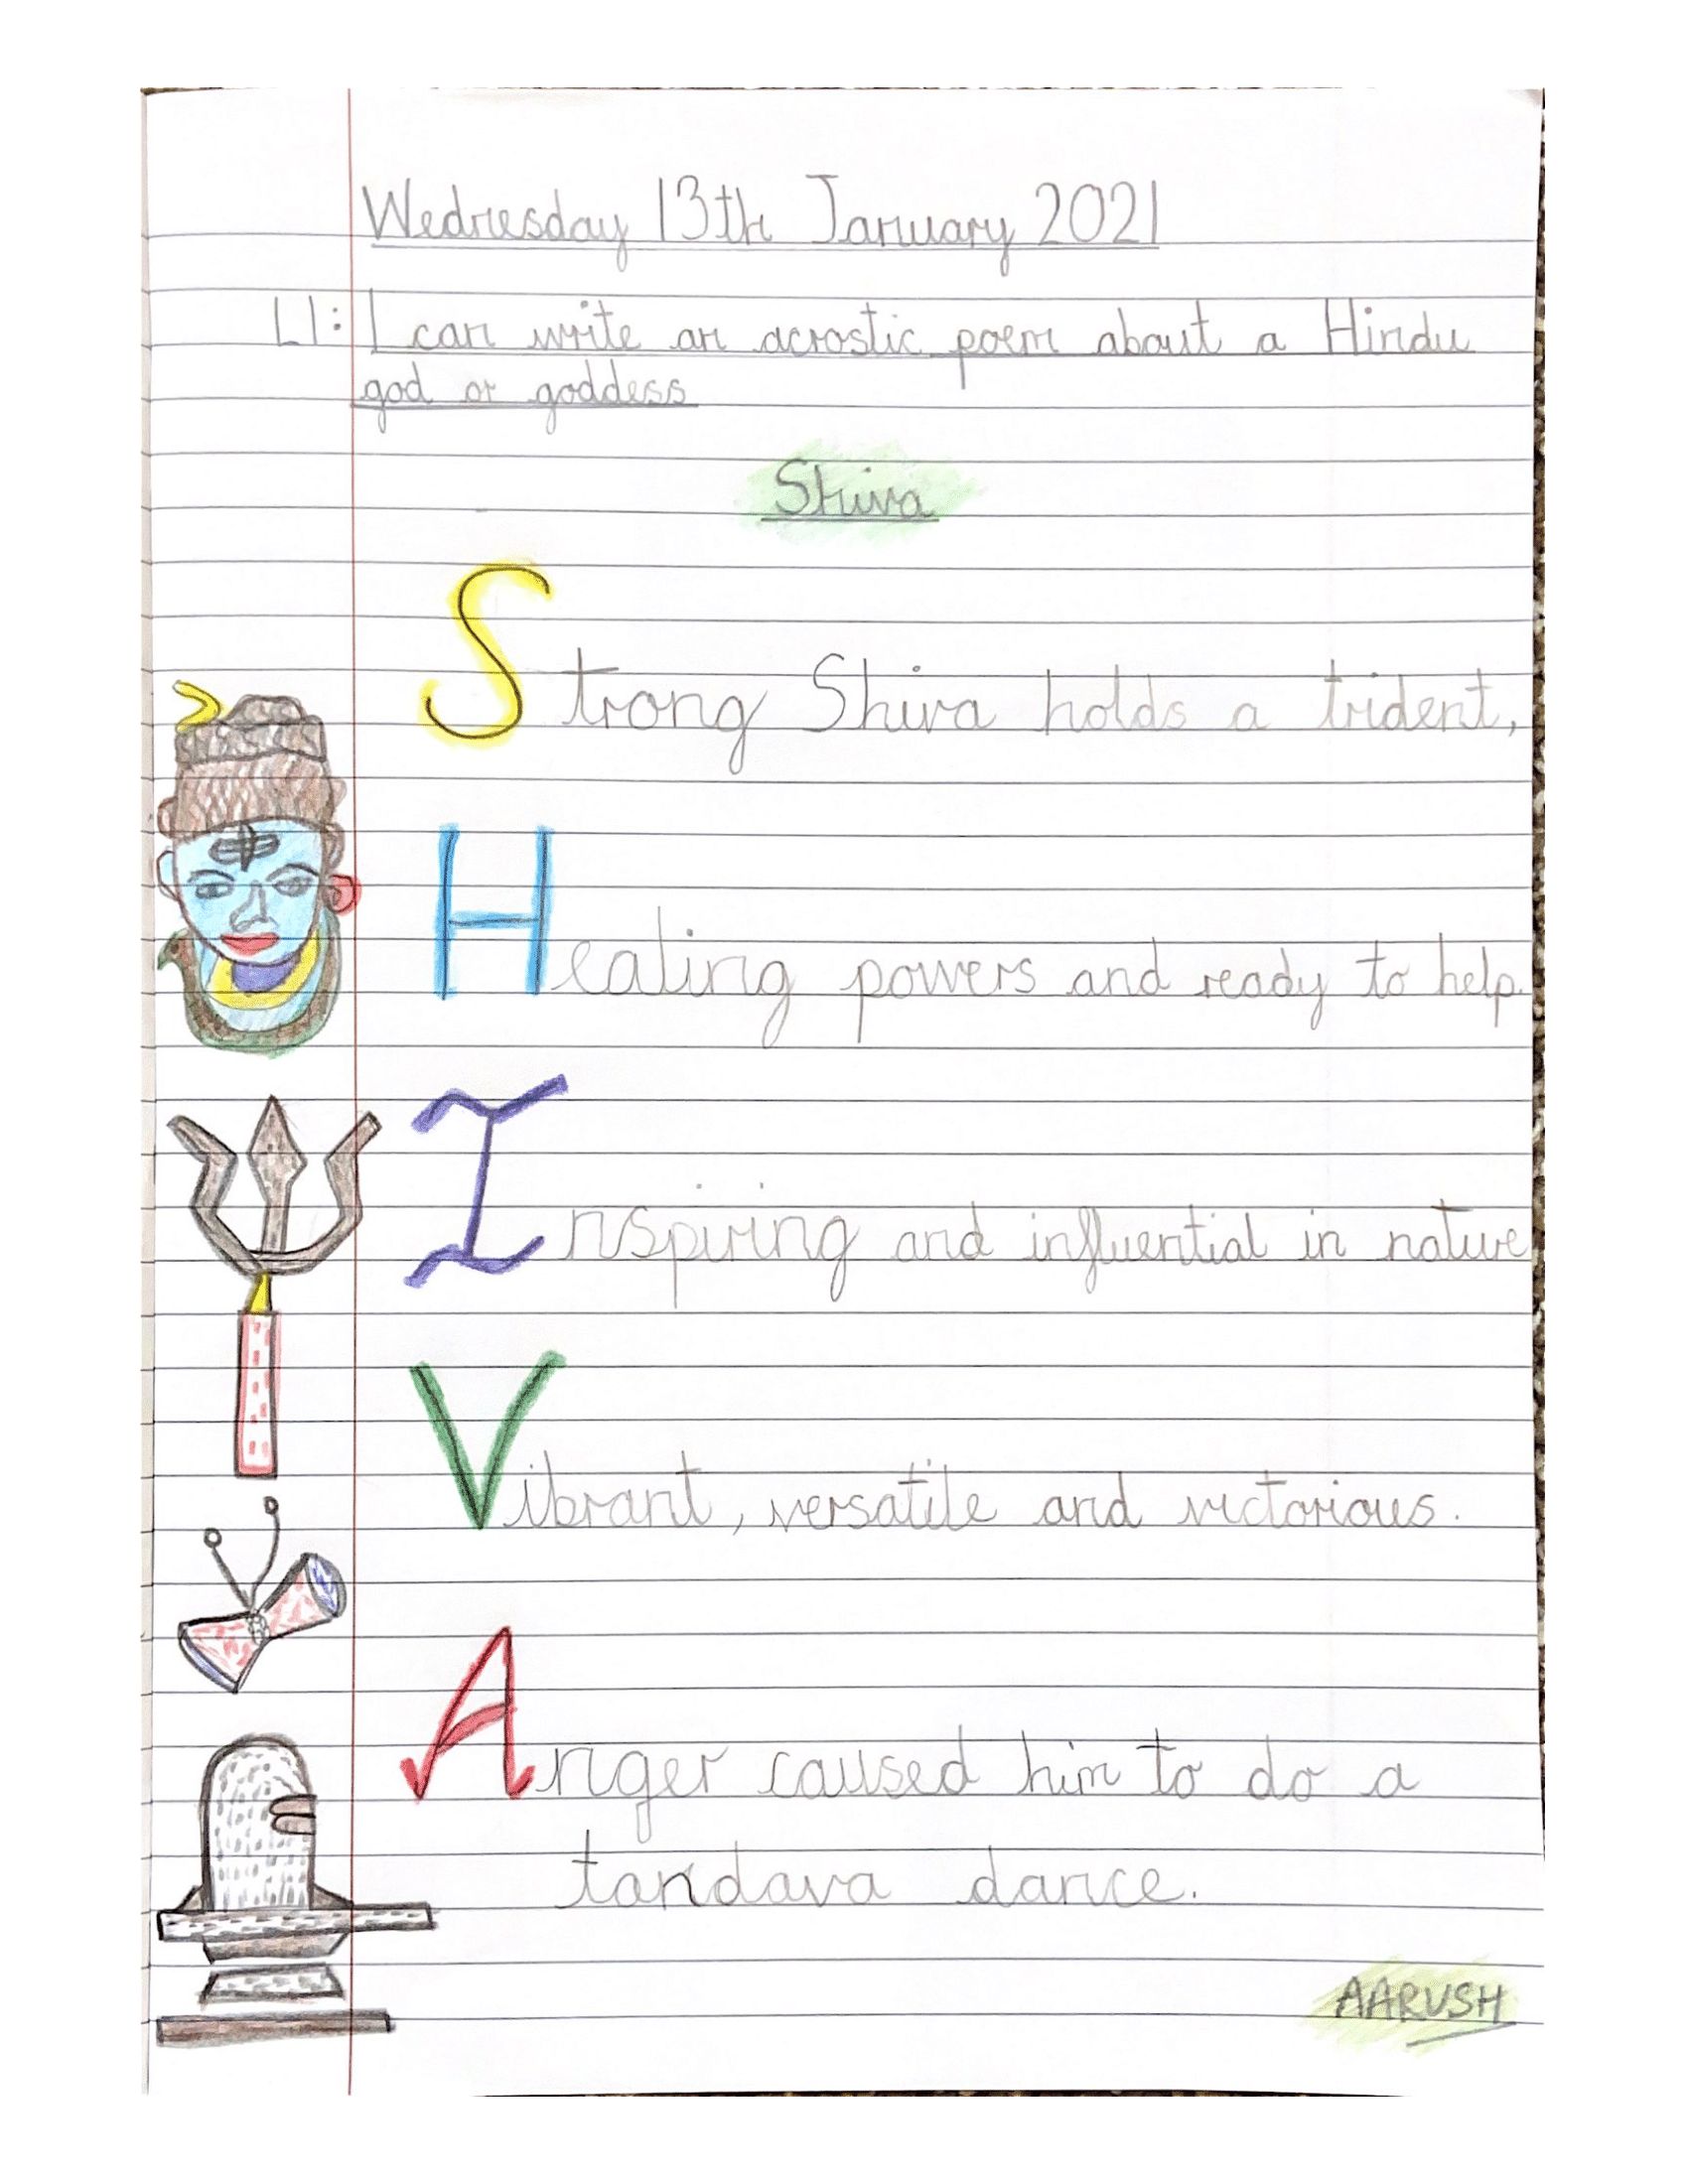 Wednesday 13th January 2021
LI: I can write an acrostic poem about a Hindu
god or goddess
Shiva
Strong Shiva holds a trident,
Healing powers and ready to help.
Inspiring and influential in nature
Vibrant, versatile and victorious.
Anger caused him to do a
tandava dance.
AARUSH